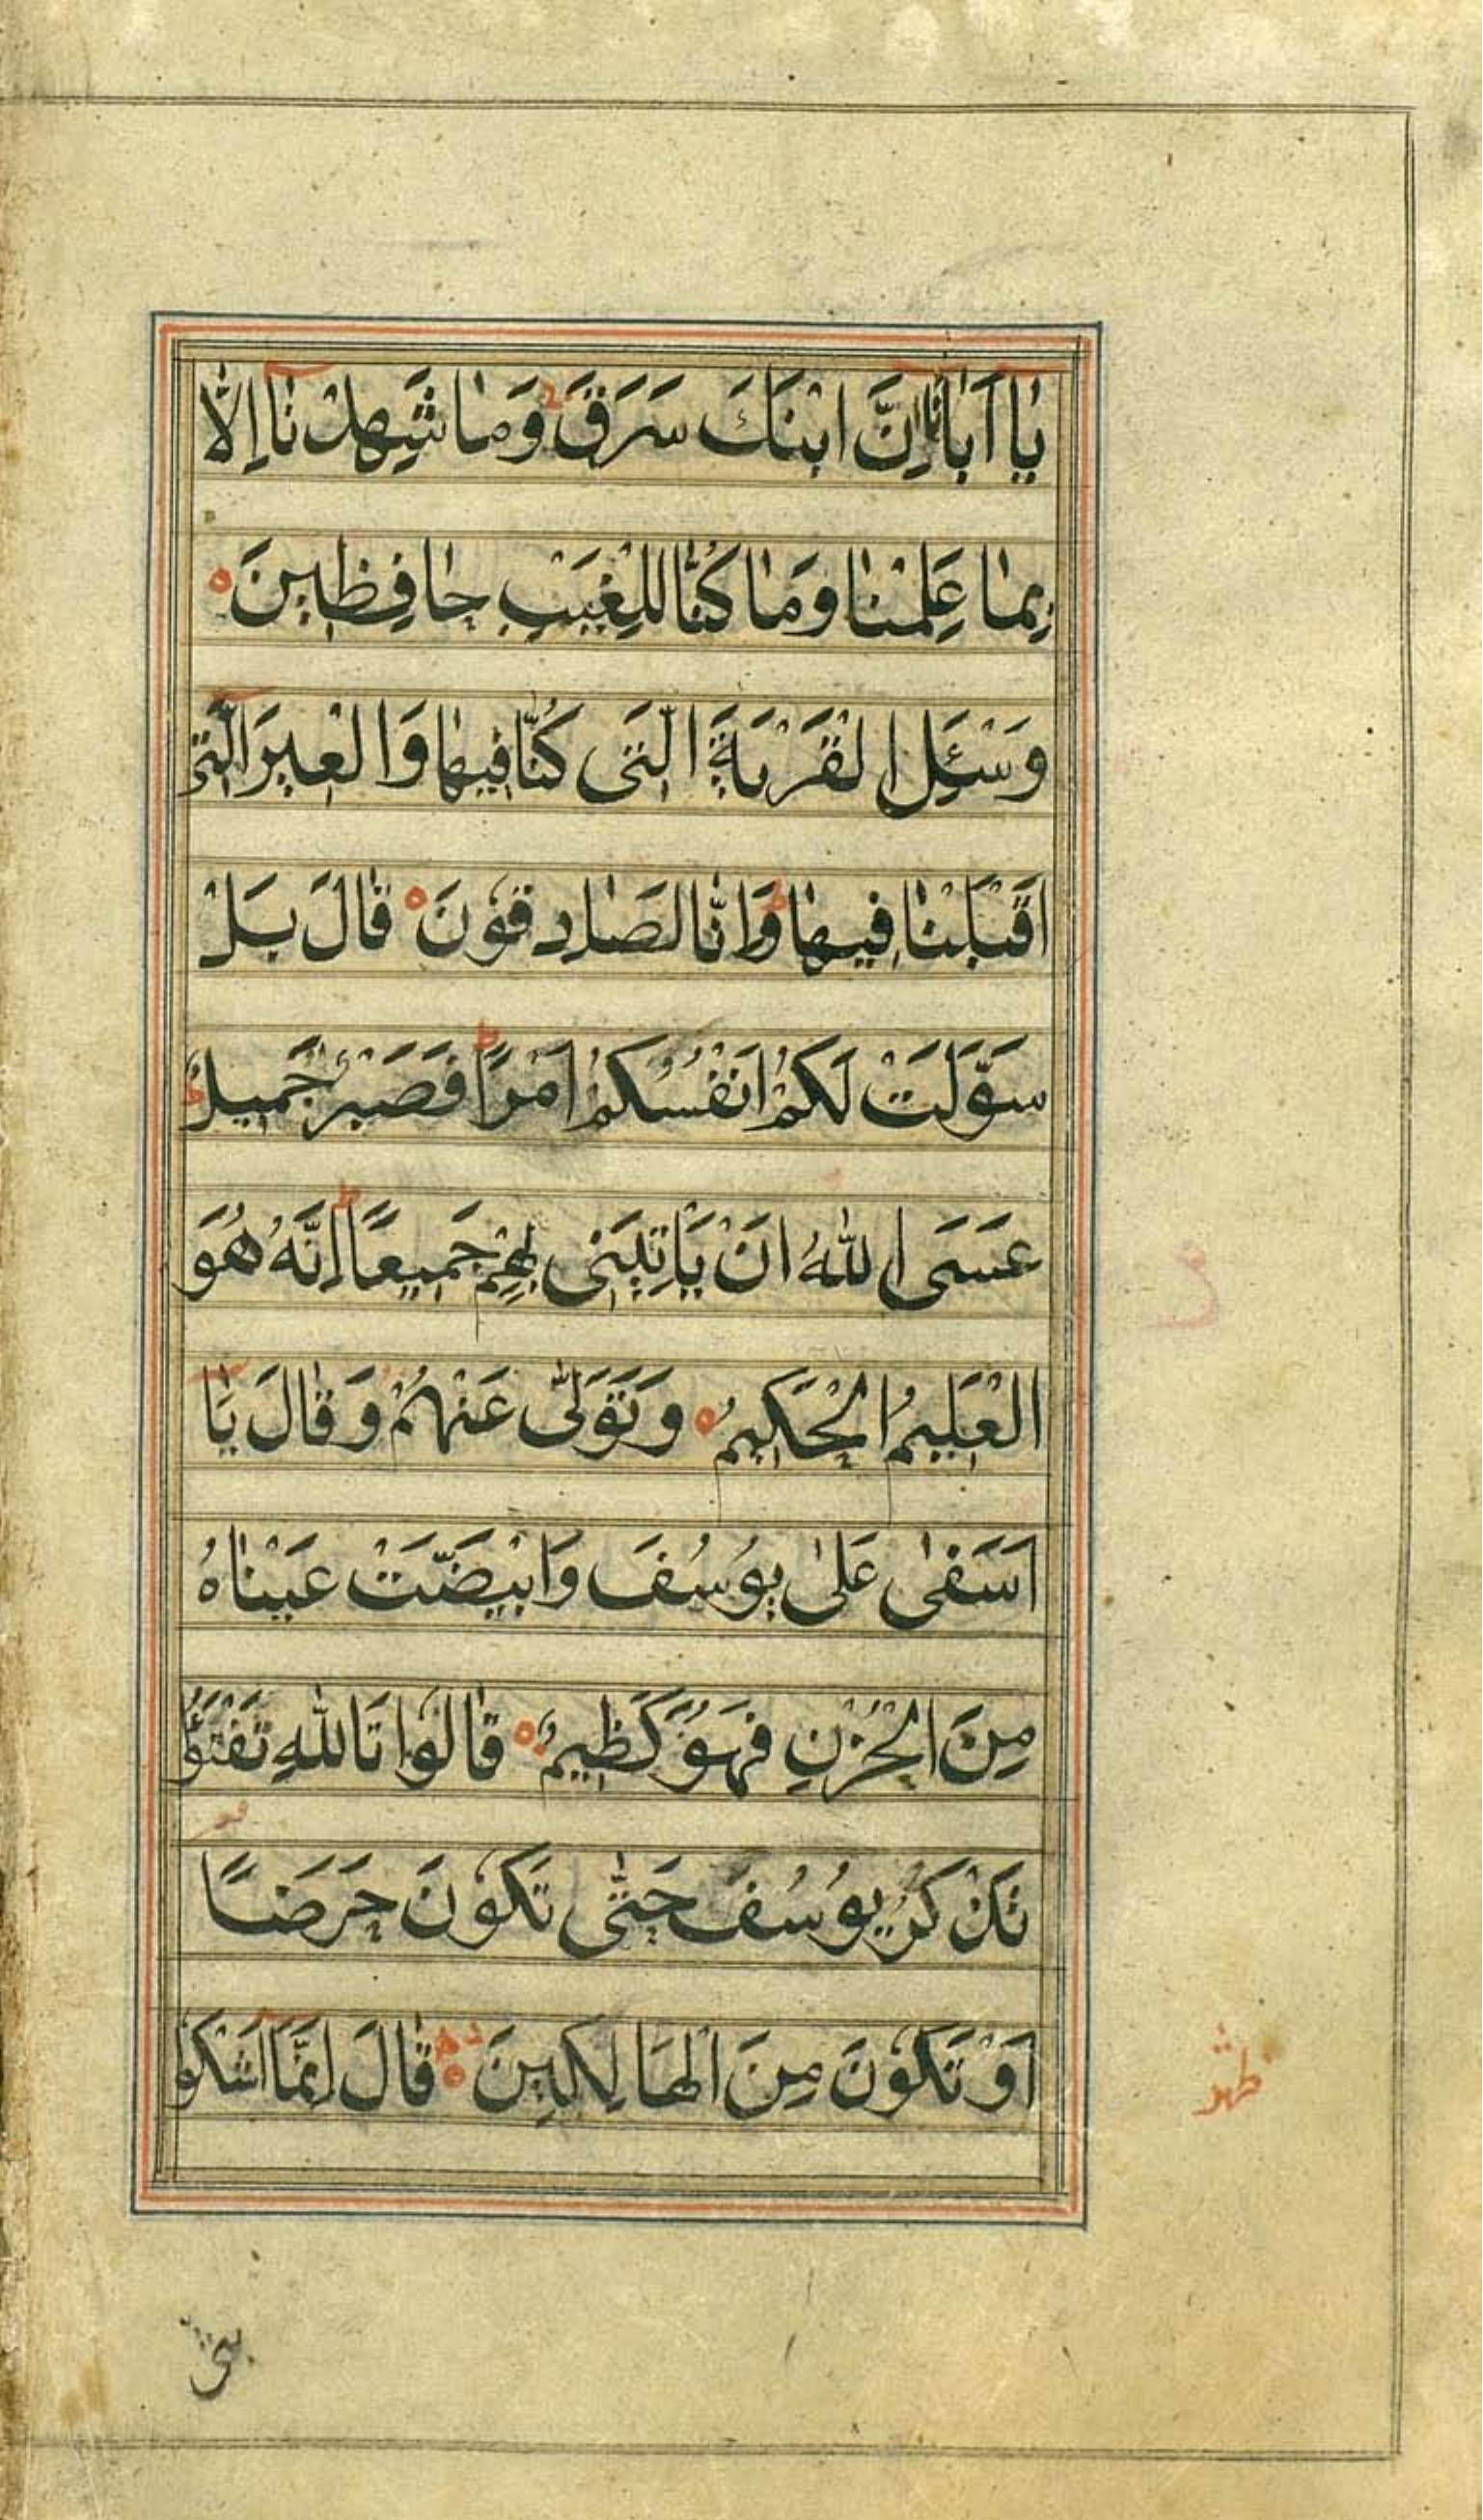 يٰا اَبٰانٰا اِنَّ ابْنَكَ سَرَقَ وَمٰا شَهِدْنٰا اِلّٰا
بِمٰا عَلِمْنٰا وَمٰا كُنّٰا لِلْغَيْبِ حٰافِظٖينَ
وَسْئَلِ الْقَرْيَةَ الَّتٖى كُنّٰا فٖيهٰا وَالْعٖيرَ الَّتٖى
اَقْبَلْنٰا فٖيهٰا وَاِنّٰا لَصٰادِقُونَ قٰالَ بَلْ
سَوَّلَتْ لَكُمْ اَنْفُسُكُمْ اَمْرًا فَصَبْرٌ جَمٖيلٌ
عَسَى اللّٰهُ اَنْ يَاْتِيَنٖى بِهِمْ جَمٖيعًا اِنَّهُ هُوَ
الْعَلٖيمُ الْحَكٖيمُ وَتَوَلّٰى عَنْهُمْ وَقٰالَ يٰا
اَسَفٰى عَلٰى يُوسُفَ وَابْيَضَّتْ عَيْنٰاهُ
مِنَ الْحُزْنِ فَهُوَ كَظٖيمٌ قٰالُوا تَاللّٰهِ تَفْتَؤُ
تَذْكُرُ يُوسُفَ حَتّٰى تَكُونَ حَرَضًا
اَوْ تَكُونَ مِنَ الْهَالِكٖينَ قٰالَ اِنَّمَا اَشْكُو
بثى